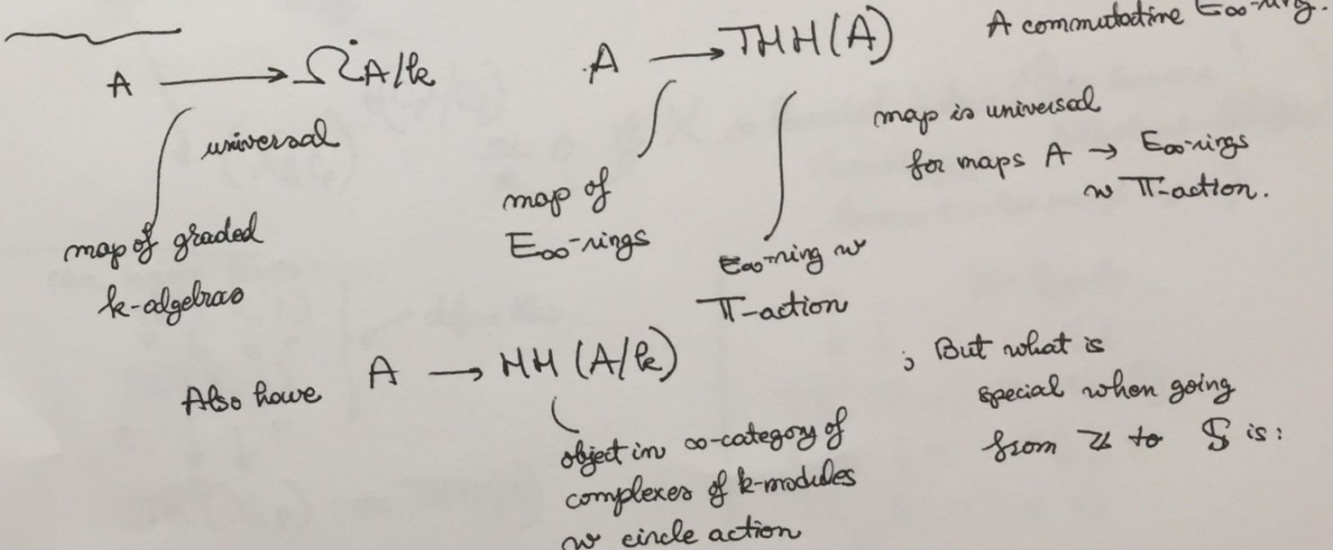 A → Ω·A/k
universal
map of graded
k-algebras
A → THH(A)
map of
E∞-rings
E∞-ring w
𝕋-action
A commutative E∞-ring.
map is universal
for maps A → E∞-rings
w 𝕋-action.
Also have A → HH(A/k)
object in ∞-category of
complexes of k-modules
w circle action
; But what is
special when going
from ℤ to 𝕊 is: